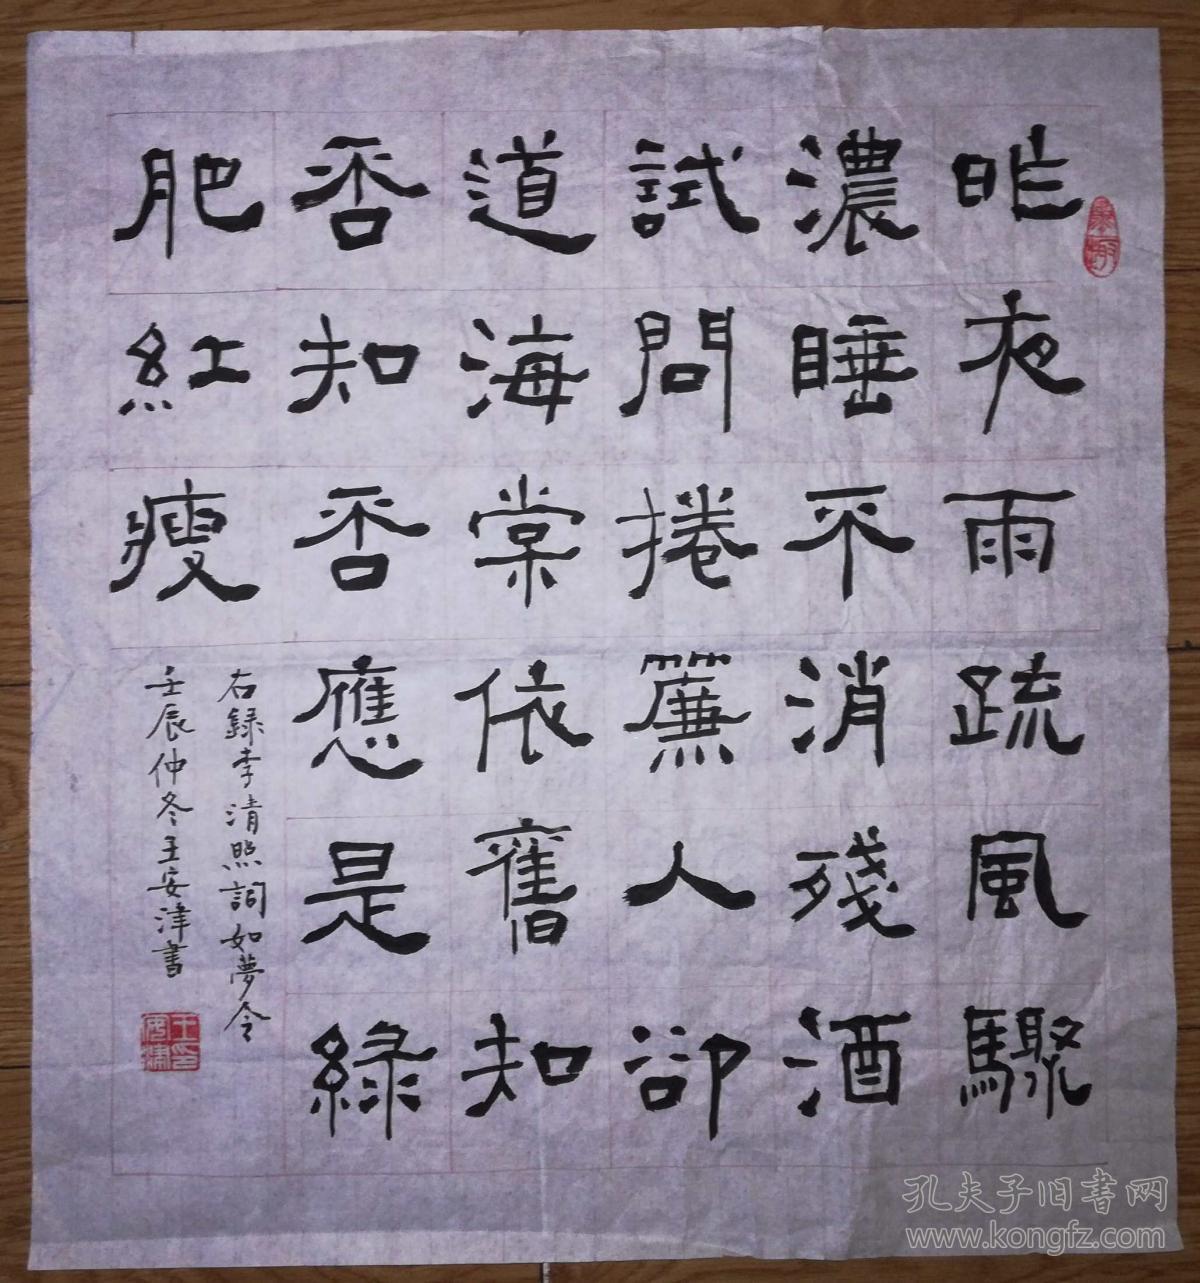 昨夜雨疏風驟
濃睡不消殘酒
試問捲簾人卻
道海棠依舊知
否知否應是綠
肥紅瘦
右錄李清照詞如夢令
壬辰仲冬王安津書
王印安津
孔夫子旧書网
www.kongfz.com